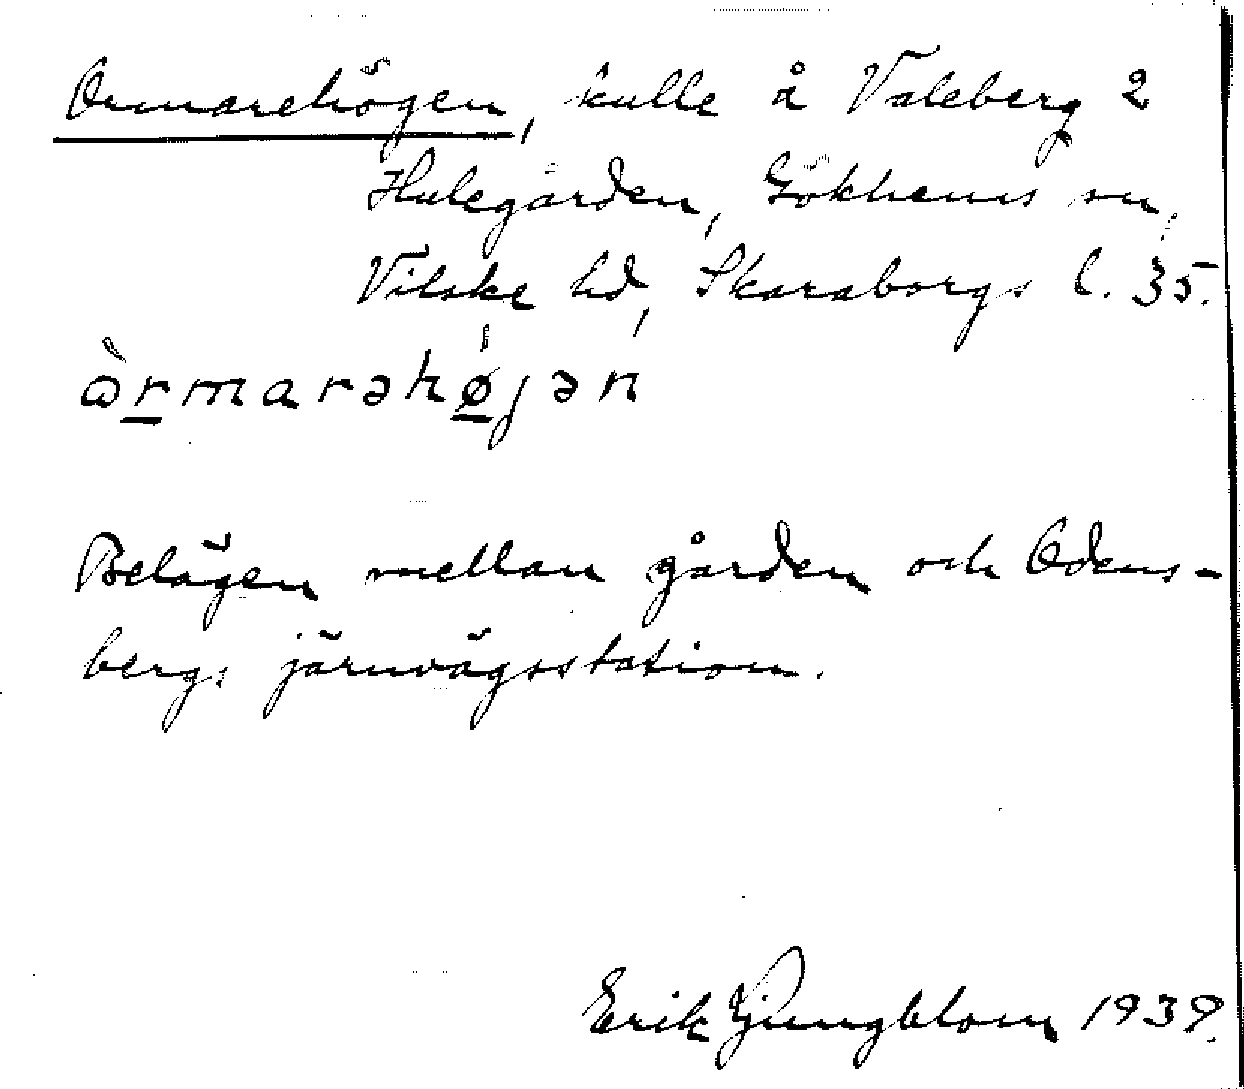 Ormarehögen, kulle å Valeberg 2
Hulegården, Gökhems sn,
Vilske hd, Skaraborgs l. 35.
ɷ̀rmarəhø̀jən
Belägen mellan gården och Odens-
bergs järnvägsstation.
Erik Ljungblom 1939.